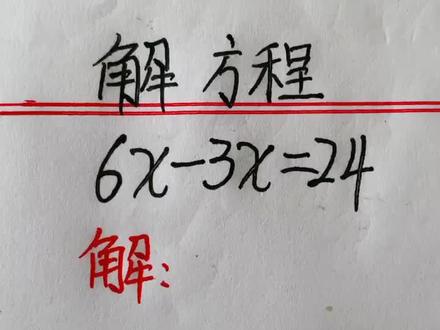 解方程
6x-3x=24
解: